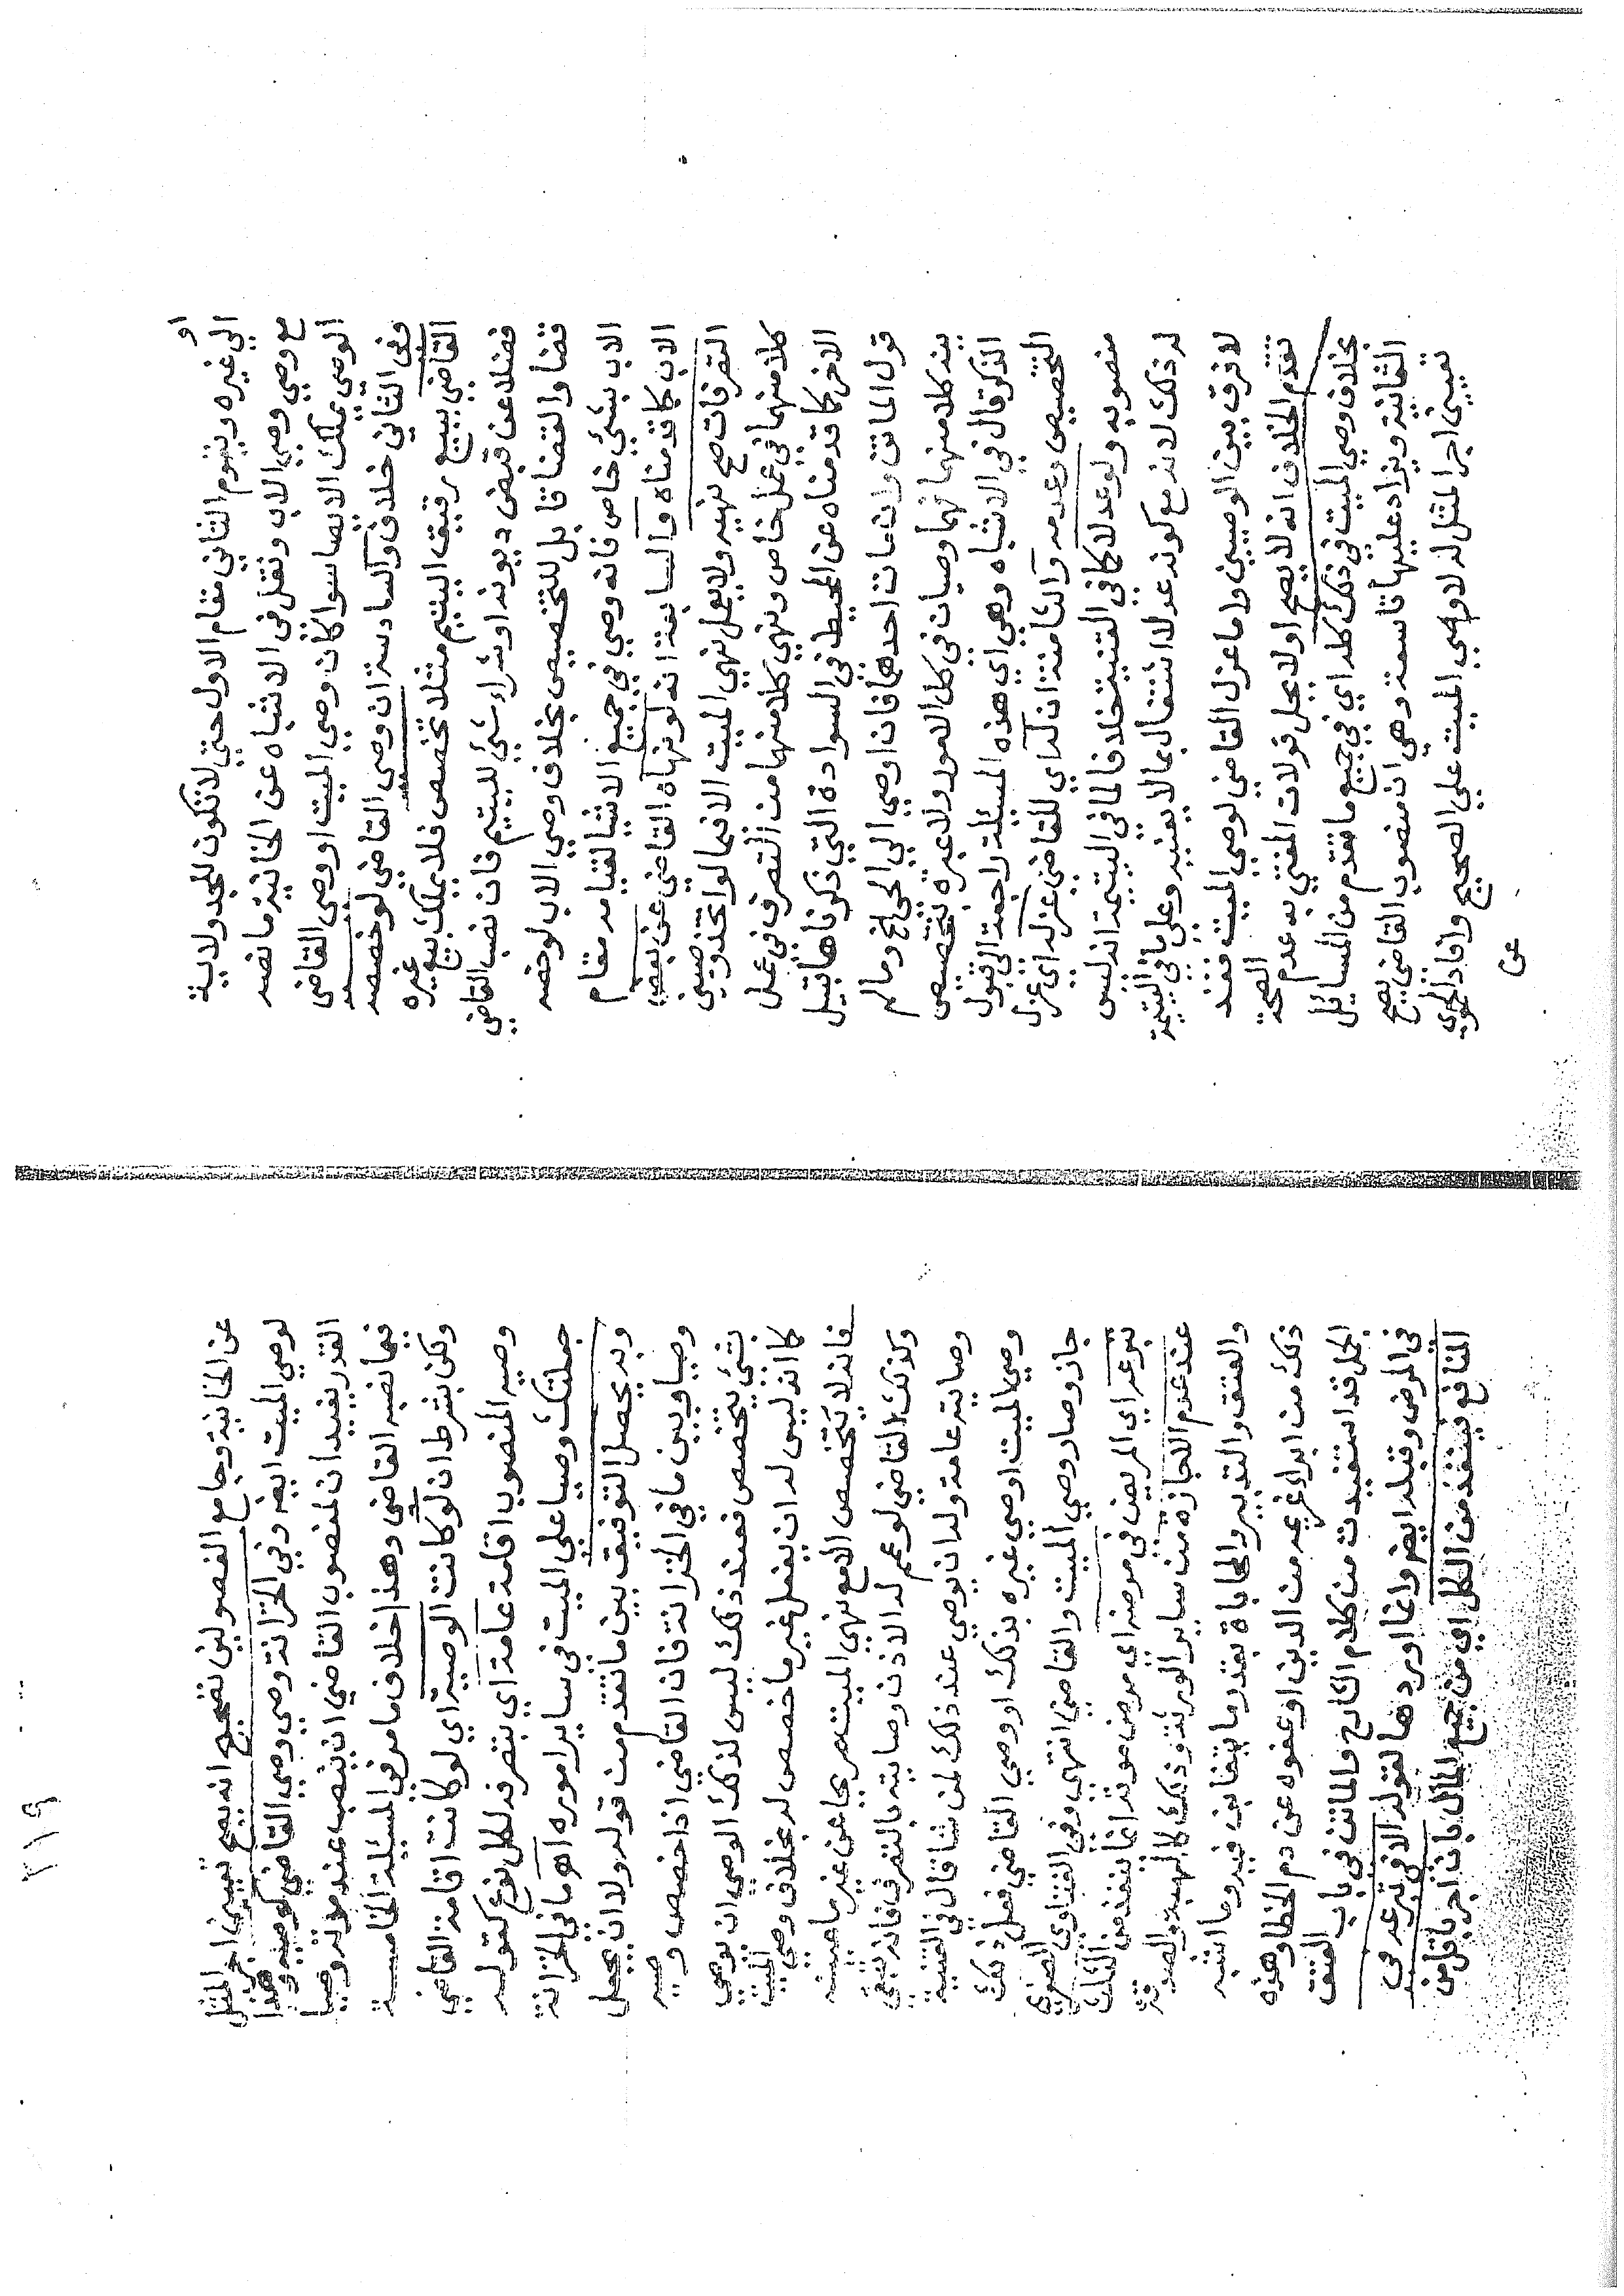 او
الي غيره ويقوم الثاني مقام الاول حتي لا تكون للجد ولاية
مع وصي وصي الاب ونقل في الاشباه عن الخانية ما نصه
الوصي يملك الايصا سوا كان وصي الميت او وصي القاضي
وفي الثاني خلاف والسادسة ان وصي القاضي لو خصصه
القاضي ببيع رقيق اليتيم مثلا تخصص فلا يملك بيع غيره
فضلا عن قبض ديونه او شراء شئ لليتيم فان نصب القاضي
قضا والقضا قابل للتخصيص بخلاف وصي الاب لو خصه
الاب بشئ خاص فانه وصي في جميع الاشيا لقيامه مقام
الاب كما قدمناه والسابعة انه لو نهاه القاضي عن بعض
التصرفات صح نهيه ولا يعمل نهي الميت الا فيما لو اتخذ وصيين
كلا منهما في عمل خاص ونهي كلا منهما من التصرف في عمل
الاخر كما قدمناه عن المحيط في السوادة التي ذكرناها قبيل
قول الماتن وان مات احدهما فان اوصي الي الحي الخ وما لم
يقيد كلا منهما فهما وصيان في كل الامور ولا عبرة بتخصيص
الذكر قال في الاشباه وهي اي هذه المسئلة راجعة الي قبول
التخصيص وعدمه والثامنة ان له اي للقاضي عزله اي عزل
منصوبه ولو عدلا كما في القنية خلافا لما في اليتيمة انه ليس
له ذلك لانه مع كونه عدلا اشتغال بما لا يفيد وعلي ما في اليتيمة
لا فرق بين الوصيين واما عزل القاضي لوصي الميت فقد
تقدم الخلاف انه لا يصح او لا يحل قولان المفتي به عدم الصحة
بخلاف وصي الميت في ذلك كله اي في جميع ما تقدم من المسايل
الثمانية ويزاد عليها تاسعة وهي ان منصوب القاضي يصح
تعيين اجر المثل له لا وصي الميت علي الصحيح وافاد الحموي
عن
٣١٩
عن الخانية وجامع الفصولين تصحيح انه يصح تعيين اجر المثل
لوصي الميت ايضا وفي الخزانة وصي وصي القاضي كوصيه وهذا
القدر يفيد ان لمنصوب القاضي ان ينصب عند موته وصيا
فيما نصبه القاضي وهذا خلاف ما مر في المسئلة الخامسة
ولكن بشرط ان لو كانت الوصية اي لو كانت اقامة القاضي
وصيه المنصوب اقامة عامة اي بتصرفه لكل نوع كقوله
جعلتك وصيا علي الميت في ساير اموره اهـ ما في الخزانة
وبه يحصل التوفيق بين ما تقدم من قوله ولا ان يجعل
وصيا وبين ما في الخزانة فان القاضي اذا خصص وصيه
بشئ يتخصص فعند ذلك ليس لذلك الوصي ان يوصي
كما انه ليس له ان يفعل غير ما خصص له بخلاف وصي الميت
فانه لا يتخصص الا مع نهي الميت صريحا عن غير ما عينه
وكذلك القاضي لو عمم له الاذن وصايته بالتصرف فانه تبقي
وصايته عامة وله ان يوصي عند ذلك لمن شا قال في القنية
وصي الميت اوصي غيره بذلك او وصي القاضي فعل ذلك
جاز وصار وصي الميت والقاضي انتهي وفي الفتاوي الصغري
تبرعه اي المريض في مرضه اي مرض موته انما ينفذ من الثلث
عند عدم الاجازة من ساير الورثة وذلك كالهبة والصدقة
والعتق والتدبير والمحاباة بقدر ما يتغابن فيه وما اشبه
ذلك من ابراء غريمه من الدين او عفوه عن دم الخطا وهذه
الجمل قد استفيدت من كلام الشارح والماتن في باب العتق
في المرض وقبله ايضا وانما اوردها لقوله الا في تبرعه في
المنافع فينفذ من الكل اي من جميع المال بان اجر باقل من